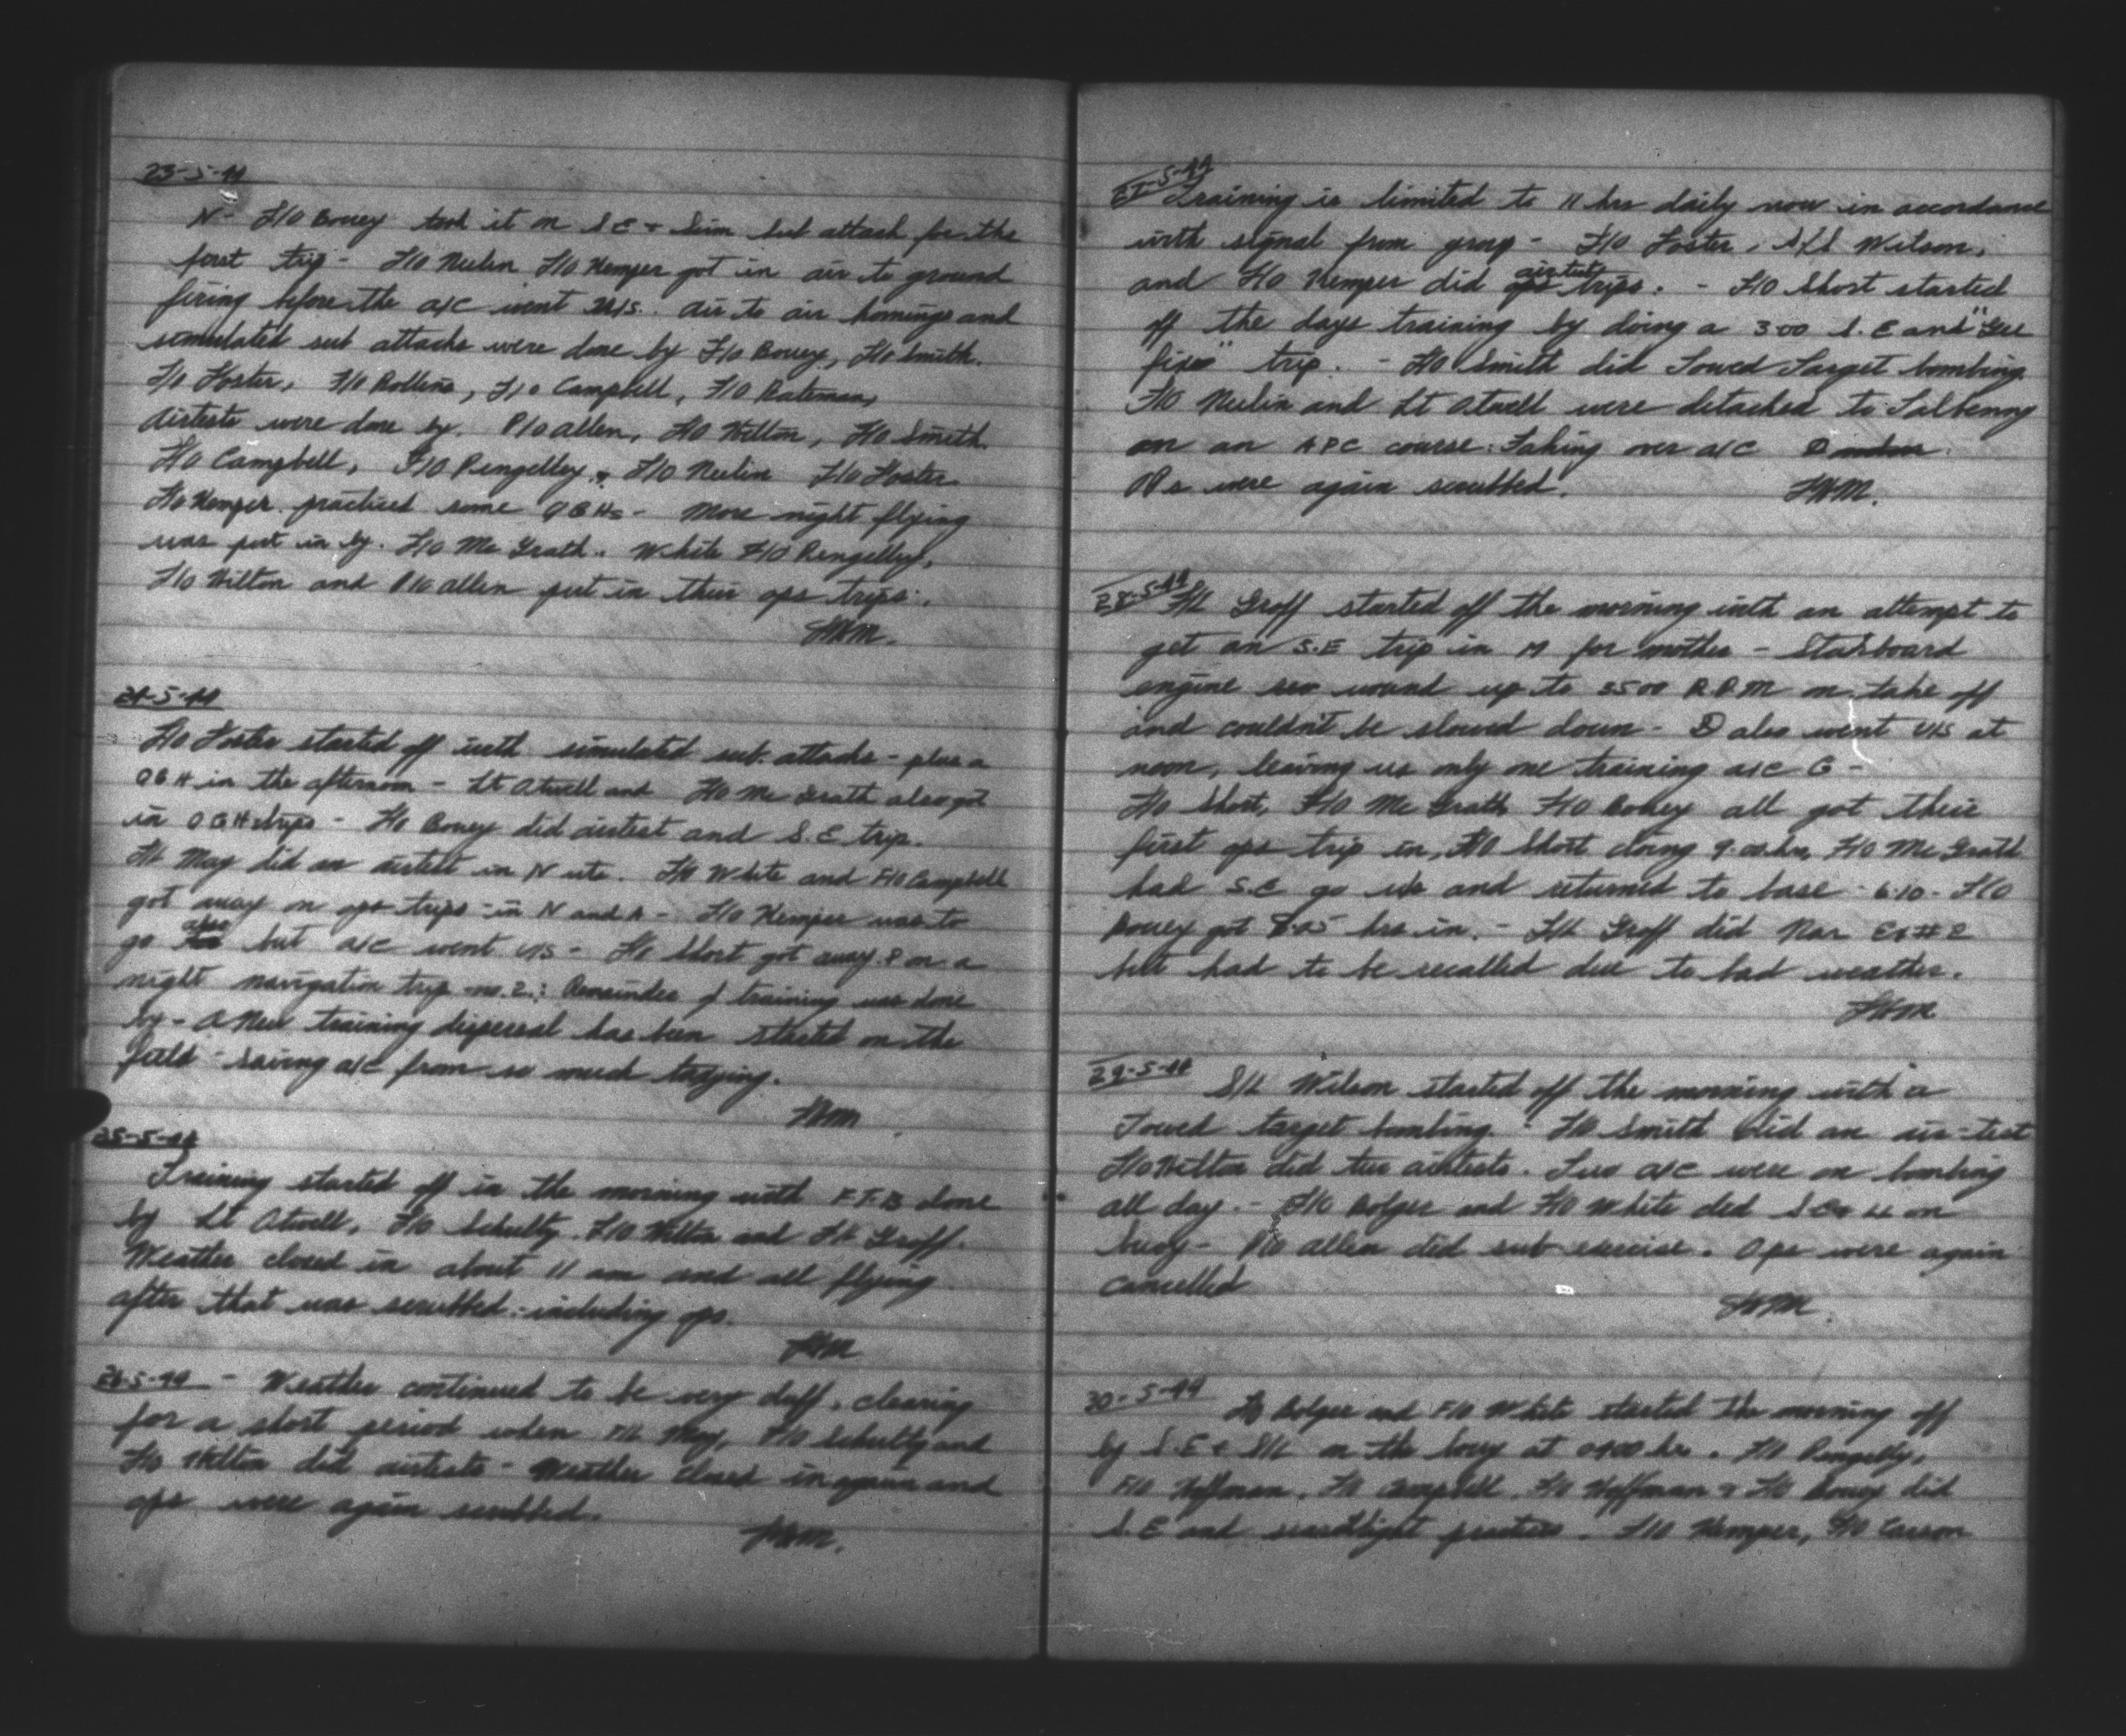 23-5-44
N - F/O Bovey took it on S.E + Sim sub attack for the
first trip - F/O Neelin F/O Kemper got in air to ground
firing before the a/c went U/S. air to air homings and
simulated sub attacks were done by F/O Bovey, F/O Smith.
F/O Foster, F/O Rollins, F/O Campbell, F/O Bateman,
Airtests were done by. P/O Allen, F/O Hilton, F/O Smith.
F/O Campbell, F/O Pengelley, F/O Neelin F/O Foster
F/O Kemper. practised some QGHs - More night flying
was put in by. F/O Mc Grath.. White F/O Pengelley,
F/O Hilton and P/O Allen put in their ops trips.
24-5-44
F/O Foster started off with simulated sub. attacks - plus a
QGH in the afternoon - Lt Atwell and F/O Mc Grath also got
in QGH trips - F/O Bovey did airtest and S.E trip.
F/L May did an airtest in N F/O White and F/O Campbell
got away on ops trips - in N and A - F/O Kemper was to
go also but a/c went U/S - F/O Short got away on a
night navigation trip no. 2.: Remainder of training was done
by - A New training dispersal has been started on the
field - saving a/c from so much taxying.
25-5-44
Training started off in the morning with F.T.B done
by Lt Atwell, F/O Schultz, F/O Hilton and F/L Groff.
Weather closed in about 11 am and all flying
after that was scrubbed - including ops.
26-5-44 - Weather continued to be very duff, clearing
for a short period when F/L May, F/O Schultz and
F/O Hilton did airtests - Weather closed in again and
ops were again scrubbed.
27-5-44 Training is limited to 11 hrs daily now in accordance
with signal from group - F/O Foster, S/L Wilson,
and F/O Kemper did airtest trips. - F/O Short started
off the days training by doing a 3:00 S.E and "Gee
fixes" trip. - F/O Smith did Towed Target bombing.
F/O Neelin and Lt Atwell were detached to Talbenny
on an APC course: Taking over a/c D
Ops were again scrubbed.
28-5-44 F/L Groff started off the morning with an attempt to
get an S.E trip in M for mother - Starboard
engine wound up to 3500 R.P.M on take off
and couldn't be slowed down - D also went U/S at
noon, leaving us only one training a/c G -
F/O Short, F/O Mc Grath F/O Bovey all got their
first ops trip in, F/O Short doing 9:00 hrs, F/O Mc Grath
had S.E go u/s and returned to base - 6:10 - F/O
Bovey got 8:25 hrs in. - F/L Groff did Nav Ex # 2
but had to be recalled due to bad weather.
29-5-44 S/L Wilson started off the morning with a
Towed target bombing. - F/O Smith did an air-test
F/O Hilton did two airtests. Two a/c were on bombing
all day. - F/O Bolger and F/O White did on
buoy - P/O Allen did sub exercise. Ops were again
cancelled
30-5-44 F/O Bolger and F/O White started the morning off
by S.E + S/L on the buoy at 0400 hrs. F/O Pengelly,
F/O Hoffman, F/O Campbell, F/O Hoffman & F/O Bovey did
S.E and searchlight practice. F/O Kemper, F/O Carson